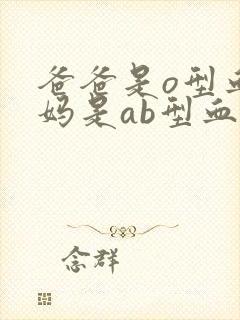 爸爸是o型血
妈是ab型血
念群